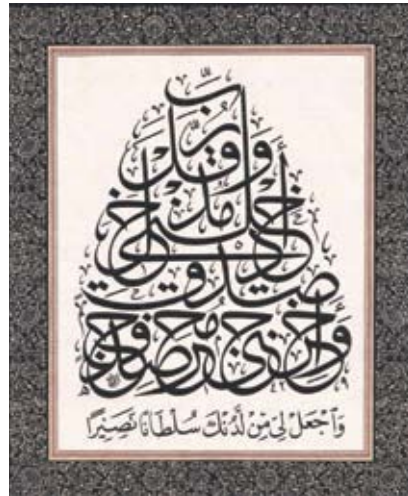 وَقُلْ رَبِّ أَدْخِلْنِى مُدْخَلَ صِدْقٍ وَأَخْرِجْنِى مُخْرَجَ صِدْقٍ
وَٱجْعَلْ لِى مِنْ لَدُنْكَ سُلْطَانًا نَصِيرًا